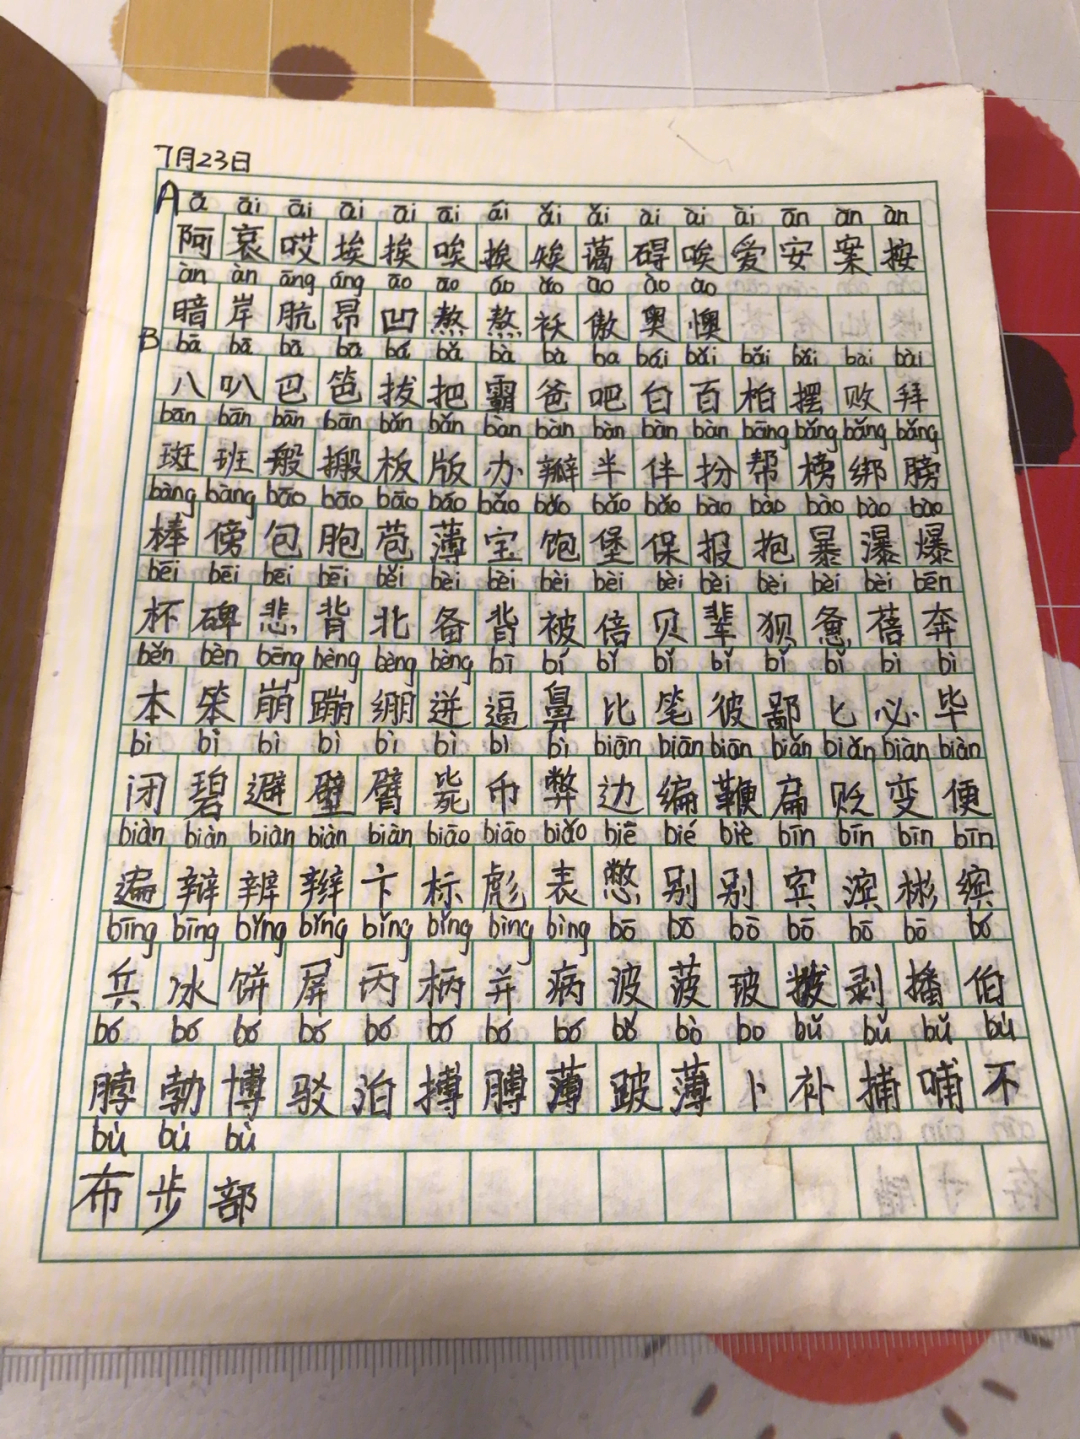 7月23日
A ā āi āi āi āi āi ái ǎi ǎi ài ài ài ān àn àn
阿 哀 哎 埃 挨 唉 挨 矮 蔼 碍 唉 爱 安 案 按
àn àn āng áng āo āo áo ǎo ào ào ào
暗 岸 肮 昂 凹 熬 熬 袄 傲 奥 懊
B bā bā bā bā bá bǎ bà bà ba bái bǎi bǎi bǎi bài bài
八 叭 巴 笆 拔 把 霸 爸 吧 白 百 柏 摆 败 拜
bān bān bān bān bǎn bǎn bàn bàn bàn bàn bàn bāng bǎng bǎng bǎng
斑 班 般 搬 板 版 办 瓣 半 伴 扮 帮 榜 绑 膀
bàng bàng bāo bāo bāo báo bǎo bǎo bǎo bǎo bào bào bào bào bào
棒 傍 包 胞 苞 薄 宝 饱 堡 保 报 抱 暴 瀑 爆
bēi bēi bēi bēi běi bèi bèi bèi bèi bèi bèi bèi bèi bèi bēn
杯 碑 悲 背 北 备 背 被 倍 贝 辈 狈 惫 蓓 奔
běn bèn bēng bèng bèng bèng bī bí bǐ bǐ bǐ bǐ bǐ bì bì
本 笨 崩 蹦 绷 迸 逼 鼻 比 笔 彼 鄙 匕 必 毕
bì bì bì bì bì bì bì bì biān biān biān biǎn biǎn biàn biàn
闭 碧 避 壁 臂 毙 币 弊 边 编 鞭 扁 贬 变 便
biàn biàn biàn biàn biàn biāo biāo biǎo biē bié biè bīn bīn bīn bīn
遍 辩 辨 辫 卞 标 彪 表 憋 别 别 宾 滨 彬 缤
bīng bīng bǐng bǐng bǐng bǐng bìng bìng bō bō bō bō bō bō bó
兵 冰 饼 屏 丙 柄 并 病 波 菠 玻 拨 剥 播 伯
bó bó bó bó bó bó bó bó bǒ bò bo bǔ bǔ bǔ bù
脖 勃 博 驳 泊 搏 膊 薄 跛 薄 卜 补 捕 哺 不
bù bù bù
布 步 部